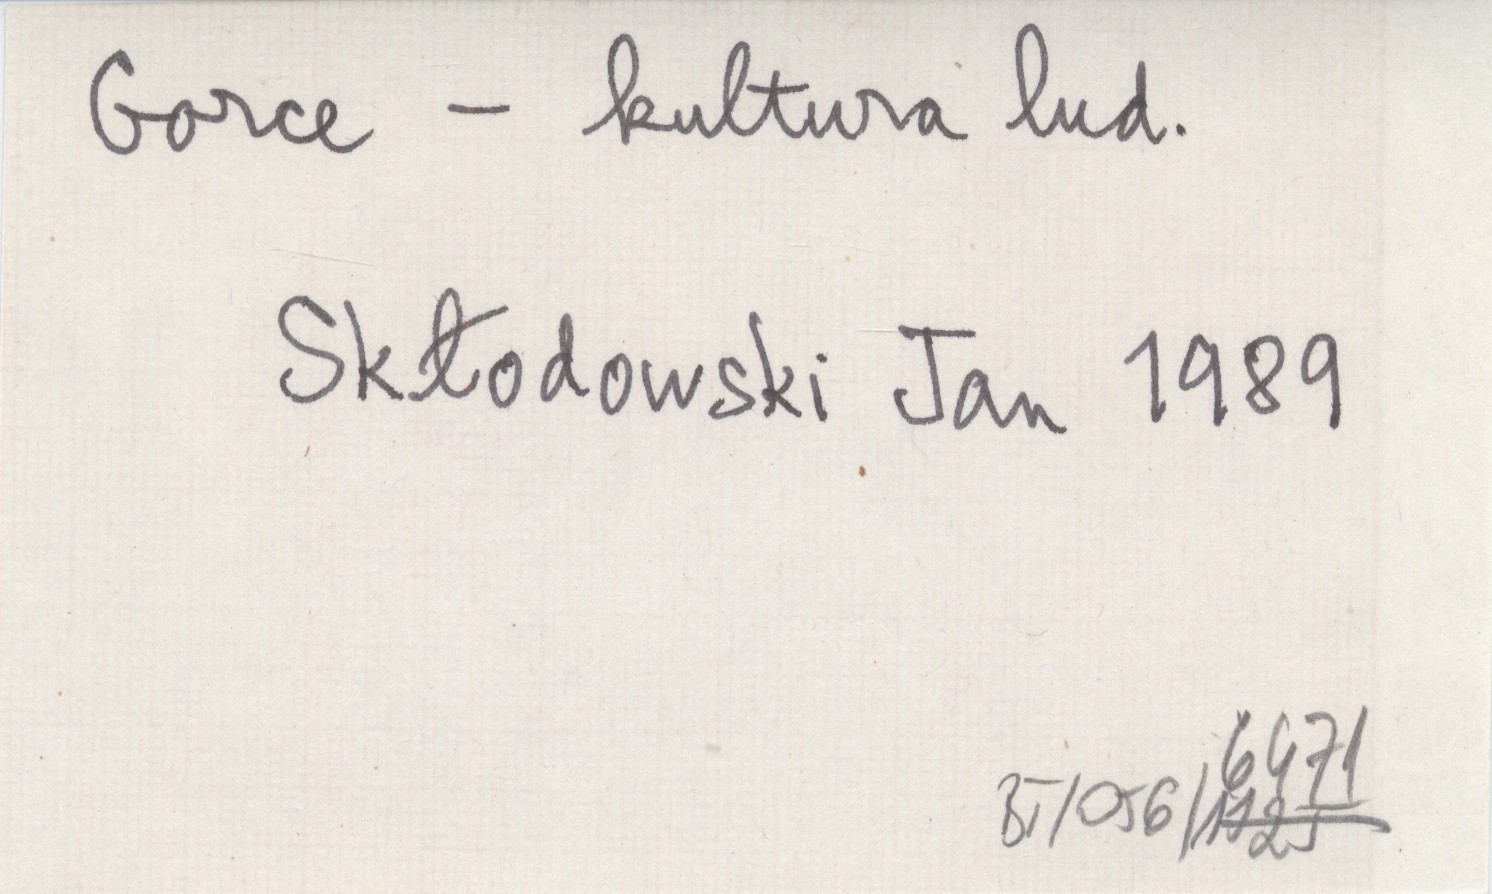 Gorce - kultura lud.
Skłodowski Jan 1989
6471
BT/056/1125